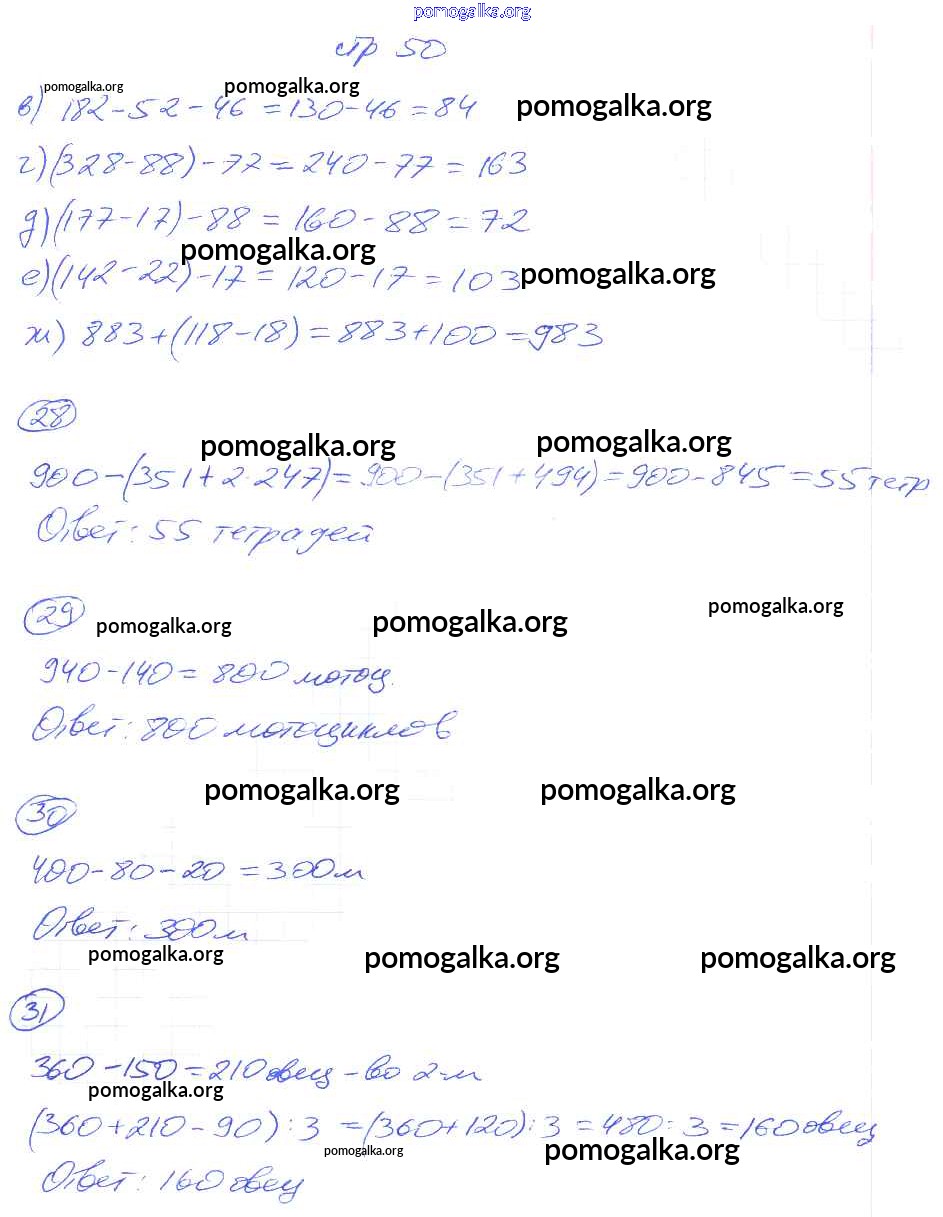 pomogalka.org
стр 50
pomogalka.org pomogalka.org pomogalka.org
в) 182-52-46 = 130-46 = 84
г) (328-88)-77 = 240-77 = 163
д) (177-17)-88 = 160-88 = 72
pomogalka.org pomogalka.org
е) (142-22)-17 = 120-17 = 103
ж) 883+(118-18) = 883+100 = 983
28
pomogalka.org pomogalka.org
900-(351+2·247) = 900-(351+494) = 900-845 = 55 тетр
Ответ: 55 тетрадей
29 pomogalka.org pomogalka.org pomogalka.org
940-140 = 800 мотоц.
Ответ: 800 мотоциклов
pomogalka.org pomogalka.org
30
400-80-20 = 300 м
Ответ: 300 м
pomogalka.org pomogalka.org pomogalka.org
31
360-150 = 210 овец - во 2-м
pomogalka.org
(360+210-90):3 = (360+120):3 = 480:3 = 160 овец
pomogalka.org pomogalka.org
Ответ: 160 овец